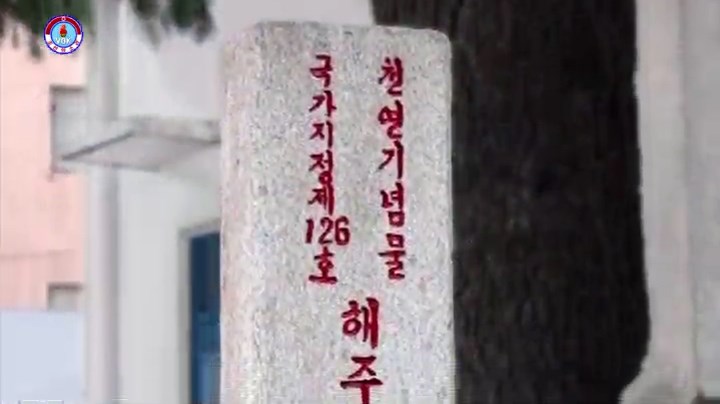 천연기념물
국가지정제126호
해주
VOK